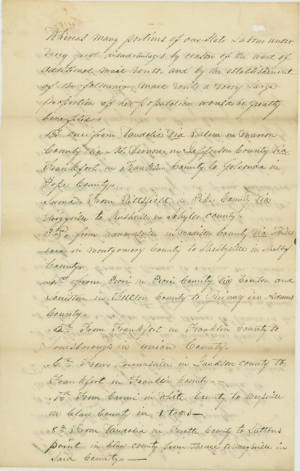 Whereas many portions of our State Labour under
very great disadvantages by reason of the want of
additional mail routs. and by the establishment
of the following mail routs a very large
proportion of her population would be greatly
benefited.
1st one from Vandalia via Salem in Marion
County via Mt Vernon in Jefferson County via
Frankfort in Franklin County to Golconda in
Pope County.
From Pittsfield in Pike County via
to Rushville in Schyler county.
3rd from in Madison County via
in Montgomery County to Shelbyville in Shelby
County.
from in County via Canton and
in County to Quincy in Adams
County.
5th From Frankfort in Franklin County to
Jonesborough in Union County.
6th From in Jackson County to
Frankfort in Franklin County.
7th From Carmi in White County to Maysville
in Clay County in
8th From Vandalia in Fayette County to
point in Clay county from thence to Maysville in
Said County.